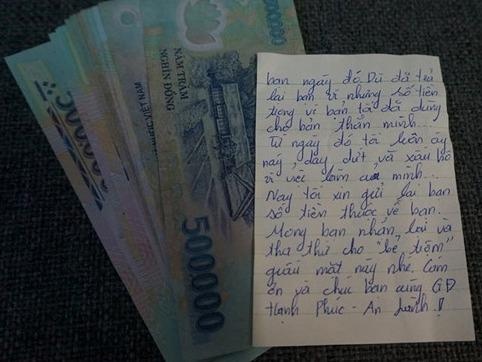 500.000
VIỆT NAM
NĂM TRĂM
NGHÌN ĐỒNG
500000
bạn ngày đó. Dù đã trả
lại bạn ví nhưng số tiền
trong ví bạn tôi đã dùng
cho bản thân mình...
Từ ngày đó tôi luôn áy
náy, day dứt, và xấu hổ
vì việc làm của mình...
Nay tôi xin gửi lại bạn
số tiền thuộc về bạn.
Mong bạn nhận lại và
tha thứ cho "kẻ trộm"
giấu mặt này nhé. Cảm
ơn và chúc bạn cùng GĐ
Hạnh Phúc - An Lành !